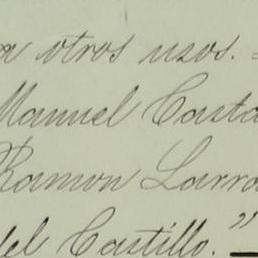 otros usos.
Manuel Casta
Ramon Larra
del Castillo."